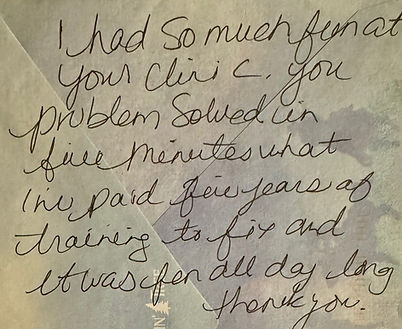 I had so much fun at
your clinic. you
problem solved in
five minutes what
I've paid five years of
training to fix and
it was fun all day long
thank you.